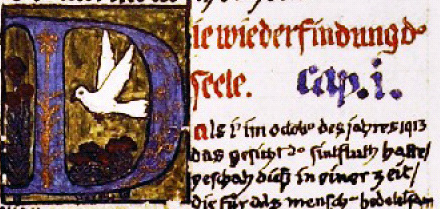 Die wiederfindung d'
seele. cap. i.
als i' im octob' des jahres 1913
das gesicht d' sintfluth hatte/
geschah dieß in einer zeit/
die für das mensch'